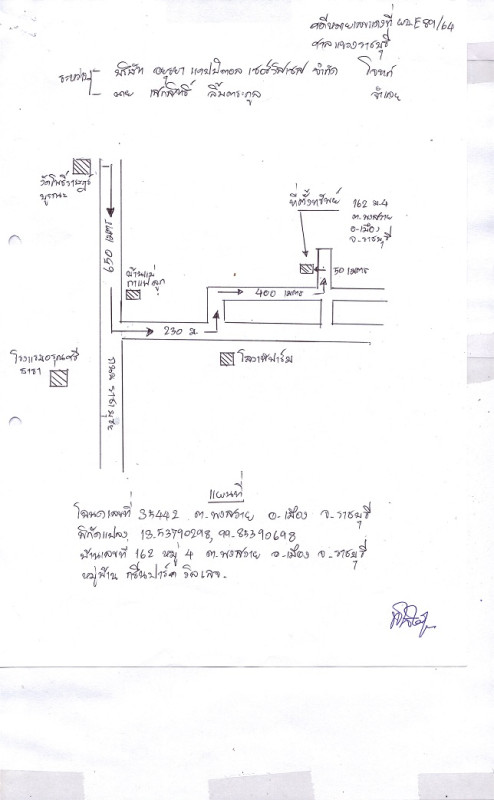 คดีหมายเลขแดงที่ ผบ.E 89/64
ศาลแขวงราชบุรี
ระหว่าง บริษัท อยุธยา แคปปิตอล เซอร์วิสเซส จำกัด โจทก์
นาย ลิ้มตระกูล จำเลย
วัดโพธิ์ราษฎร์
บูรณะ
650 เมตร
บ้านแม่
กาแฟลูก
ที่ตั้งทรัพย์
162 ม.4
ต.พงสวาย
อ.เมือง
จ.ราชบุรี
50 เมตร
400 เมตร
230 ม.
โรงแรมอรุณศรี
ธารา
ถนน
แผนที่
โฉนดเลขที่ 35442 ต.พงสวาย อ.เมือง จ.ราชบุรี
พิกัดแปลง 13.53790298, 99.85390698
บ้านเลขที่ 162 หมู่ 4 ต.พงสวาย อ.เมือง จ.ราชบุรี
หมู่บ้าน กรีนปาร์ค วิลเลจ.